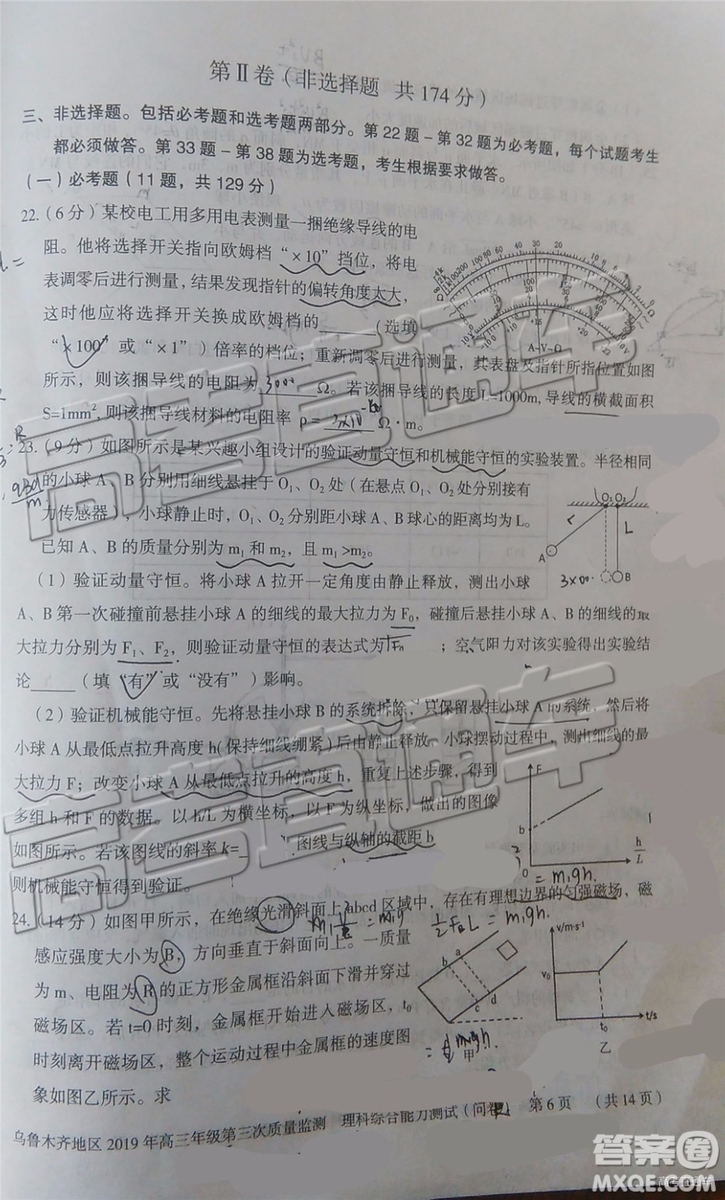 第Ⅱ卷（非选择题 共174分）
三、非选择题。包括必考题和选考题两部分。第22题－第32题为必考题，每个试题考生
都必须做答。第33题－第38题为选考题，考生根据要求做答。
（一）必考题（11题，共129分）
22.（6分）某校电工用多用电表测量一捆绝缘导线的电
阻。他将选择开关指向欧姆档“×10”挡位，将电
表调零后进行测量，结果发现指针的偏转角度太大，
这时他应将选择开关换成欧姆档的______（选填
“×100”或“×1”）倍率的档位；重新调零后进行测量，其表盘及指针所指位置如图
所示，则该捆导线的电阻为 3000 Ω。若该捆导线的长度L=1000m，导线的横截面积
S=1mm²，则该捆导线材料的电阻率 ρ= Ω·m。
A-V-Ω
23.（9分）如图所示是某兴趣小组设计的验证动量守恒和机械能守恒的实验装置。半径相同
的小球A、B分别用细线悬挂于O₁、O₂处（在悬点O₁、O₂处分别接有
力传感器），小球静止时，O₁、O₂分别距小球A、B球心的距离均为L。
已知A、B的质量分别为m₁和m₂，且m₁>m₂。
O₁ O₂
L
A
B
3×00
（1）验证动量守恒。将小球A拉开一定角度由静止释放，测出小球
A、B第一次碰撞前悬挂小球A的细线的最大拉力为F₀，碰撞后悬挂小球A、B的细线的最
大拉力分别为F₁、F₂，则验证动量守恒的表达式为 ；空气阻力对该实验得出实验结
论_____（填“有”或“没有”）影响。
（2）验证机械能守恒。先将悬挂小球B的系统拆除，只保留悬挂小球A的系统，然后将
小球A从最低点拉升高度h(保持细线绷紧)后由静止释放，小球摆动过程中，测出细线的最
大拉力F；改变小球A从最低点拉升的高度h，重复上述步骤，得到
多组h和F的数据。以h/L为横坐标，以F为纵坐标，做出的图像
如图所示。若该图线的斜率k= 图线与纵轴的截距b
则机械能守恒得到验证。
F
b
0
h/L
=m₁gh.
24.（14分）如图甲所示，在绝缘光滑斜面上abcd区域中，存在有理想边界的匀强磁场，磁
感应强度大小为B，方向垂直于斜面向上。一质量
为m、电阻为R的正方形金属框沿斜面下滑并穿过
磁场区。若t=0时刻，金属框开始进入磁场区，t₀
时刻离开磁场区，整个运动过程中金属框的速度图
象如图乙所示。求
a
b
c
d
甲
v/m·s⁻¹
v₀
t₀
t/s
乙
乌鲁木齐地区2019年高三年级第三次质量监测 理科综合能力测试（问卷） 第6页 （共14页）
高考直通车
高考直通车
答案圈
MXQE.COM